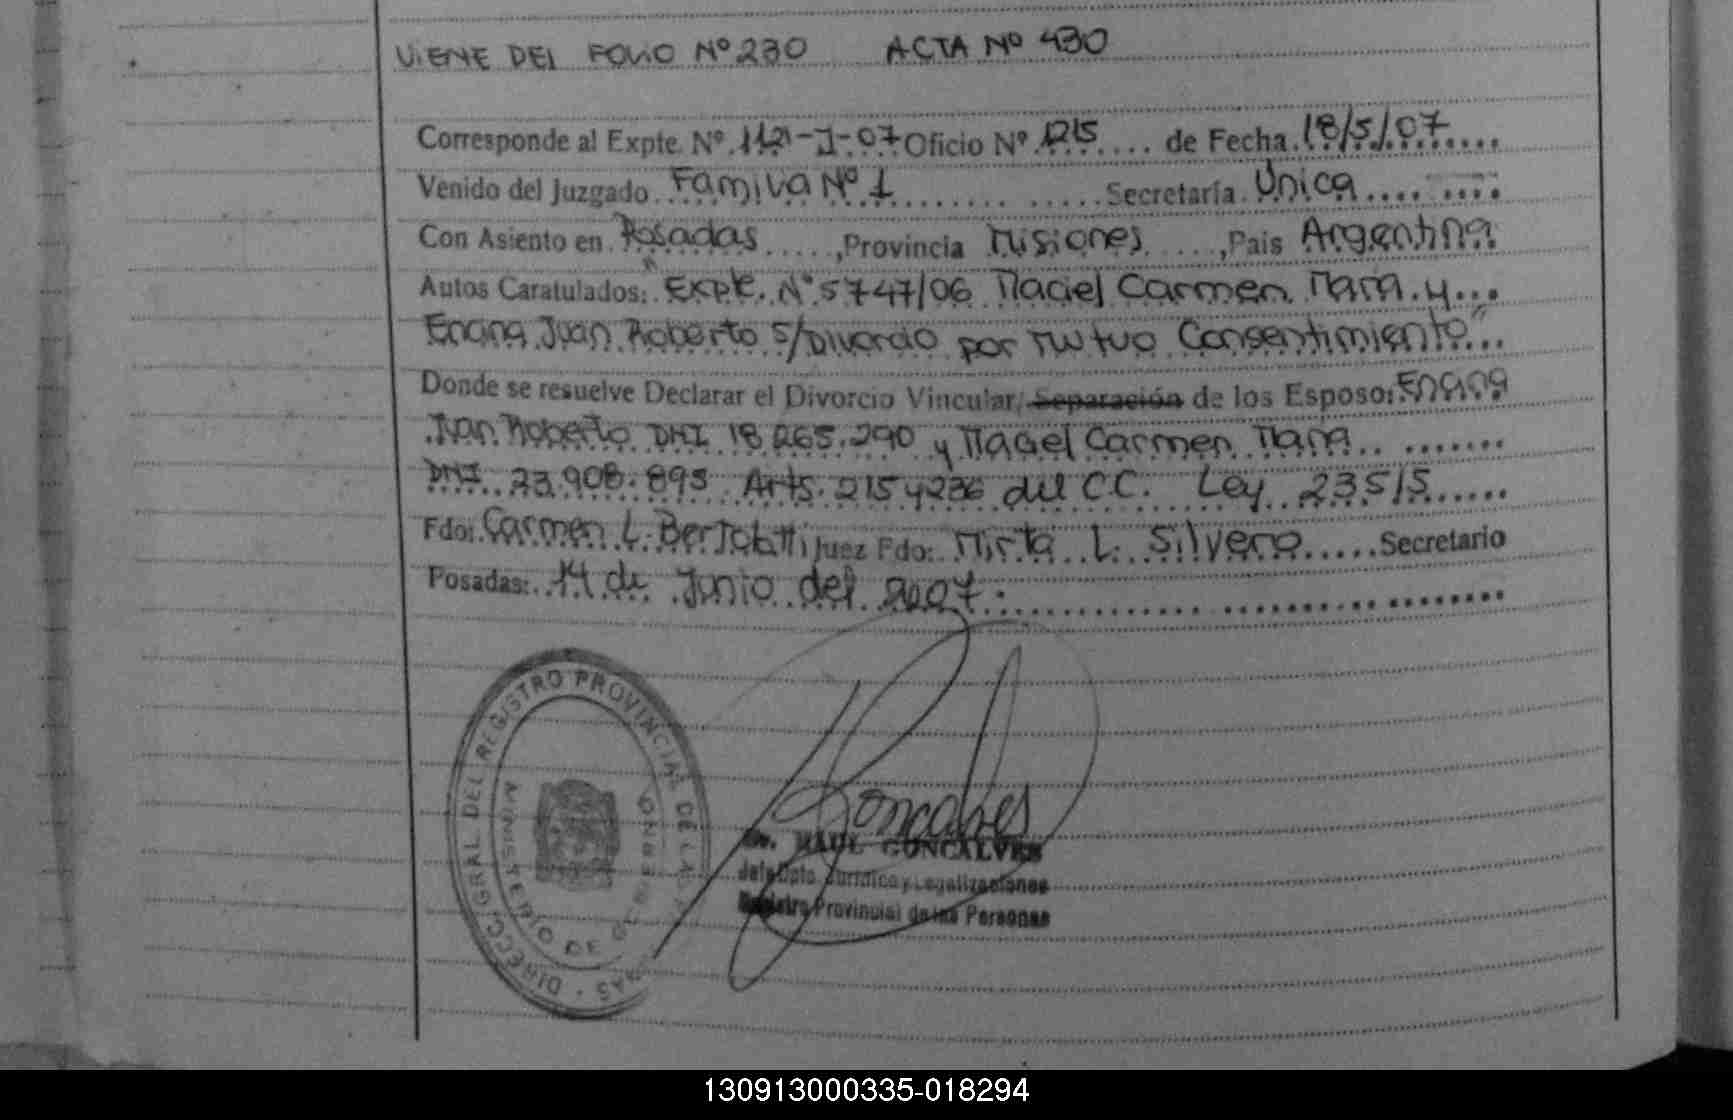 VIENE DEL FOLIO Nº 230 ACTA Nº 430
Corresponde al Expte. Nº 1121-J-07 Oficio Nº 1215 de Fecha 18/5/07
Venido del Juzgado Familia Nº 1 Secretaría Única
Con Asiento en Posadas, Provincia Misiones, Pais Argentina
Autos Caratulados: "Expte. Nº 5747/06 Maciel Carmen Maria y
Encina Juan Roberto S/Divorcio por Mutuo Consentimiento"
Donde se resuelve Declarar el Divorcio Vincular/ Separación de los Esposo: Encina
Juan Roberto DNI 18.265.290 y Maciel Carmen Maria
DNI 23.908.895 Arts. 215 y 236 del C.C. Ley 23515
Fdo: Carmen L. Bertolotti Juez Fdo: Mirta L. Silvero Secretario
Posadas: 14 de Junio del 2007.
DIRECC. GRAL. DEL REGISTRO PROVINCIAL DE LAS
MINISTERIO DE GOBIERNO
Goncalves
Dr. RAUL GONCALVES
Jefe Dpto. Jurídico y Legalizaciones
Registro Provincial de las Personas
130913000335-018294